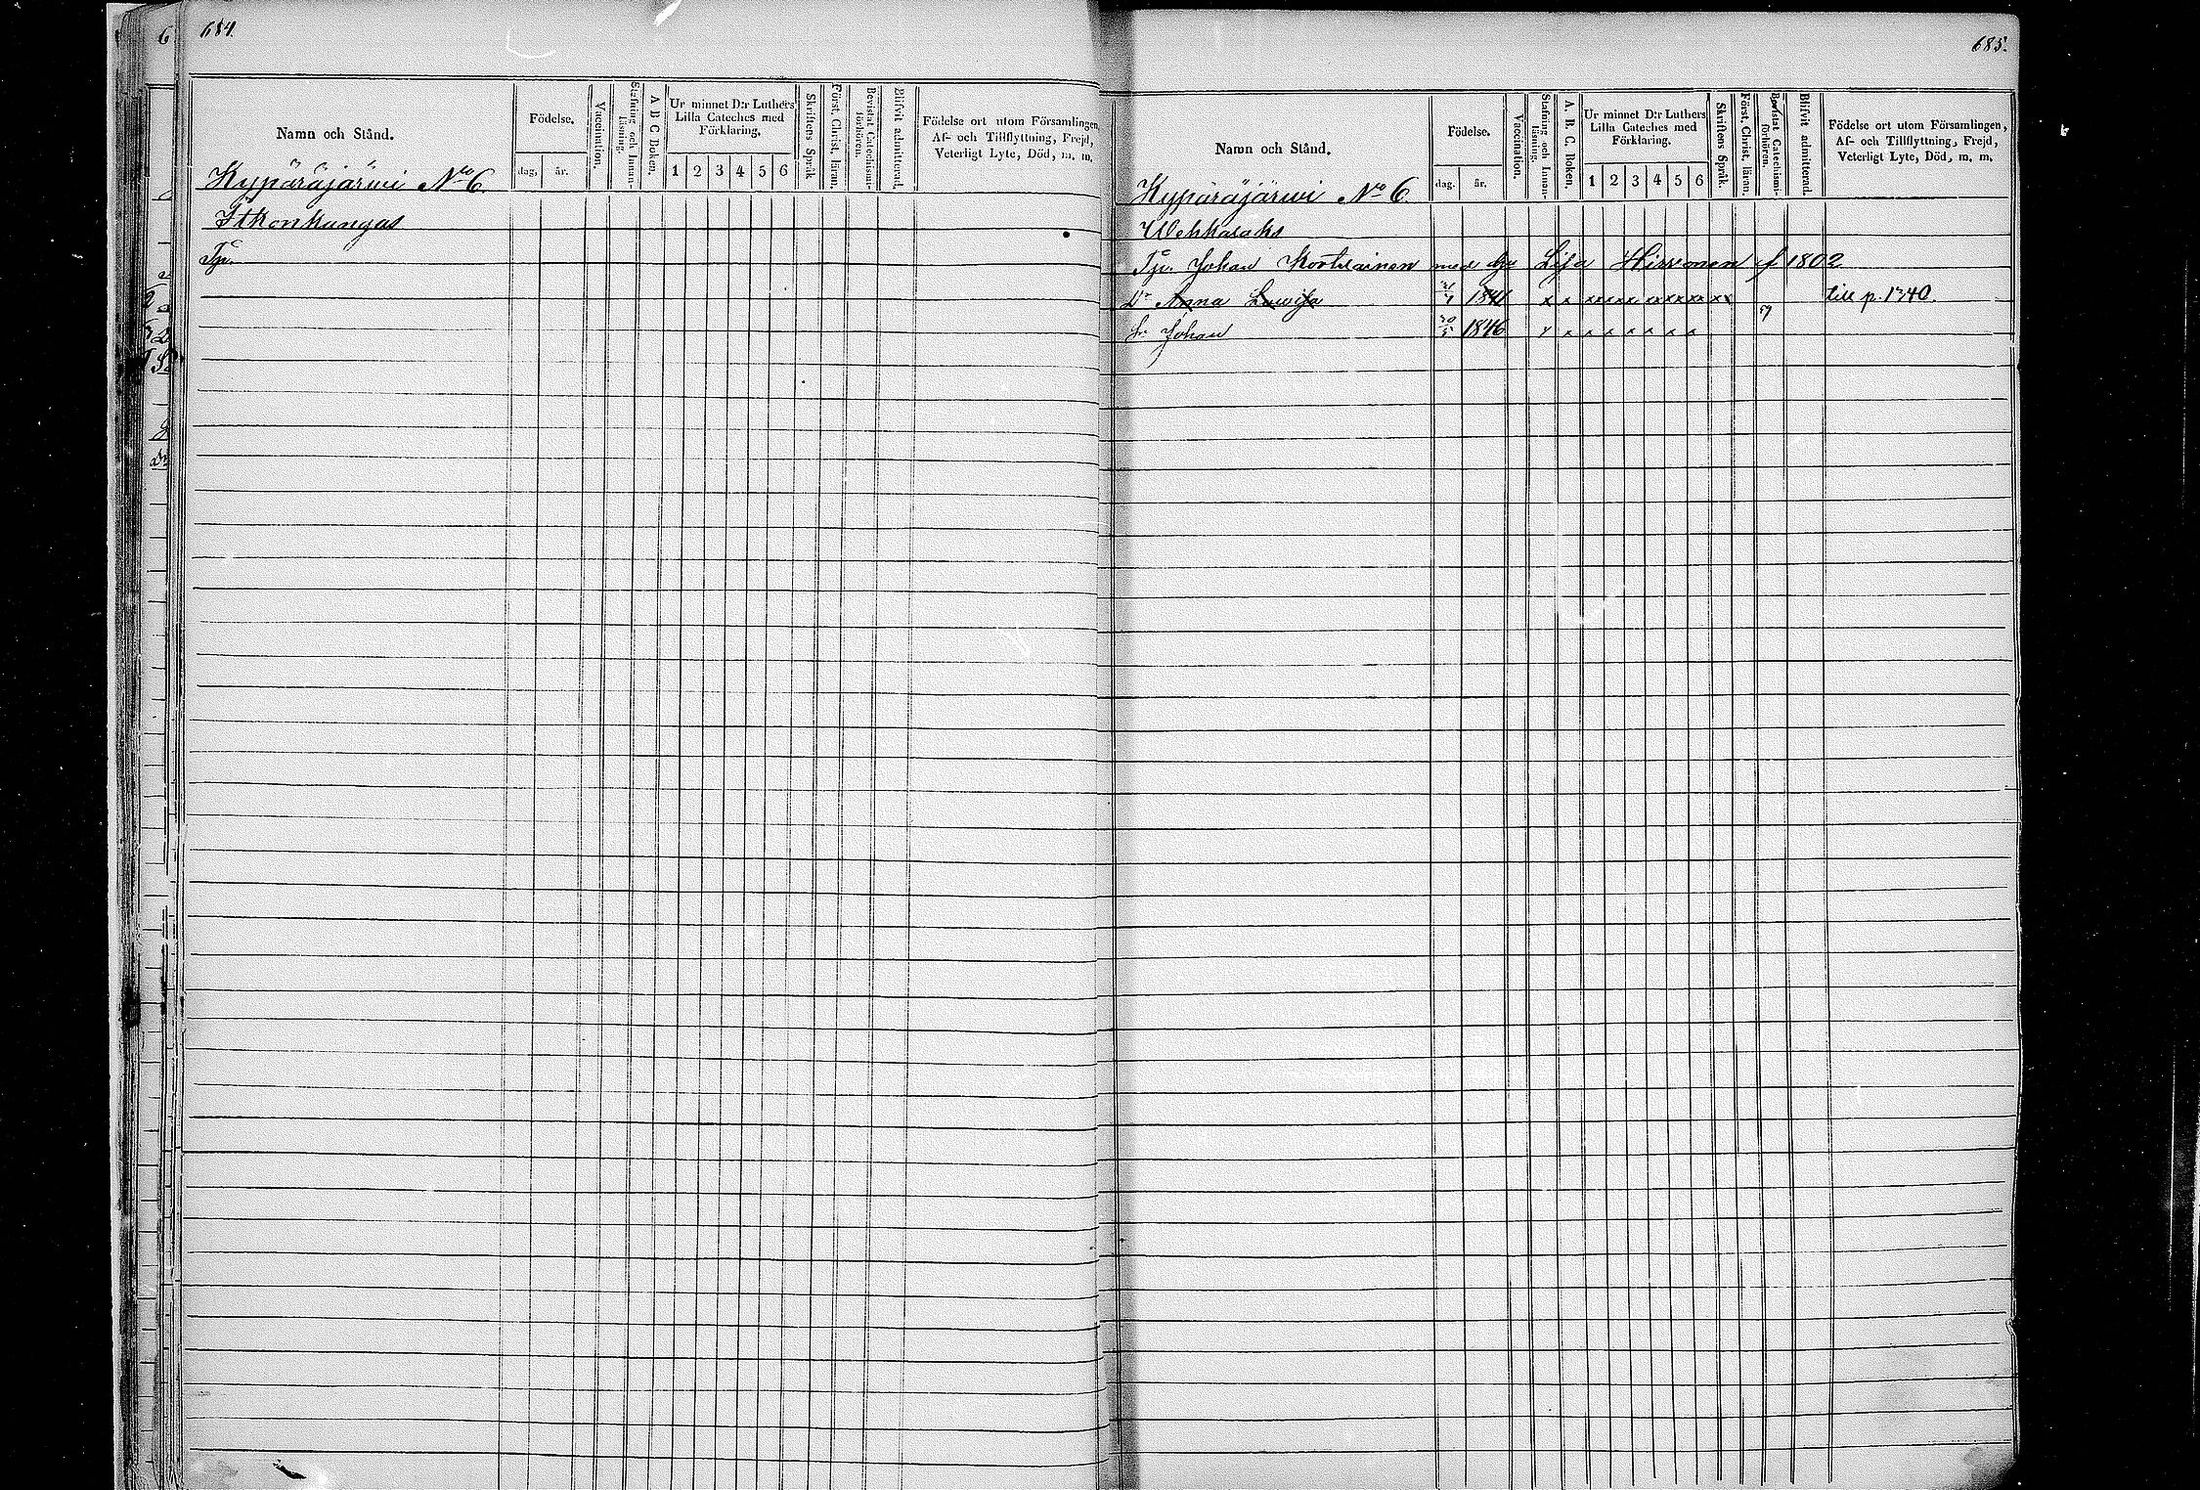 684.
Namn och Stånd.
Födelse.
dag, år.
Vaccination.
Stafning och Innan-
läsning.
A B C Boken.
Ur minnet D:r Luthers
Lilla Cateches med
Förklaring.
1 2 3 4 5 6
Skriftens Språk.
Först. Christ. läran.
Bevistat Catechismi-
förhören.
Blifvit admitterad.
Födelse ort utom Församlingen,
Af- och Tillflyttning, Frejd,
Veterligt Lyte, Död, m. m.
Kypäräjärwi No 6
Itkonkangas
Tp.
685.
Namn och Stånd.
Födelse.
dag. år.
Vaccination.
Stafning och Innan-
läsning.
A. B. C. Boken.
Ur minnet D:r Luthers
Lilla Cateches med
Förklaring.
1 2 3 4 5 6
Skriftens Språk.
Först. Christ. läran.
Bevistat Catechismi-
förhören.
Blifvit admitterad.
Födelse ort utom Församlingen,
Af- och Tillflyttning, Frejd,
Veterligt Lyte, Död, m. m.
Kypäräjärwi No 6
Johan med Lisa Hirvonen f 1802
Dr Anna Lowisa 1841 x x x x x x x x x x x x till p. 1340.
Sr Johan 1846 x x x x x x x x